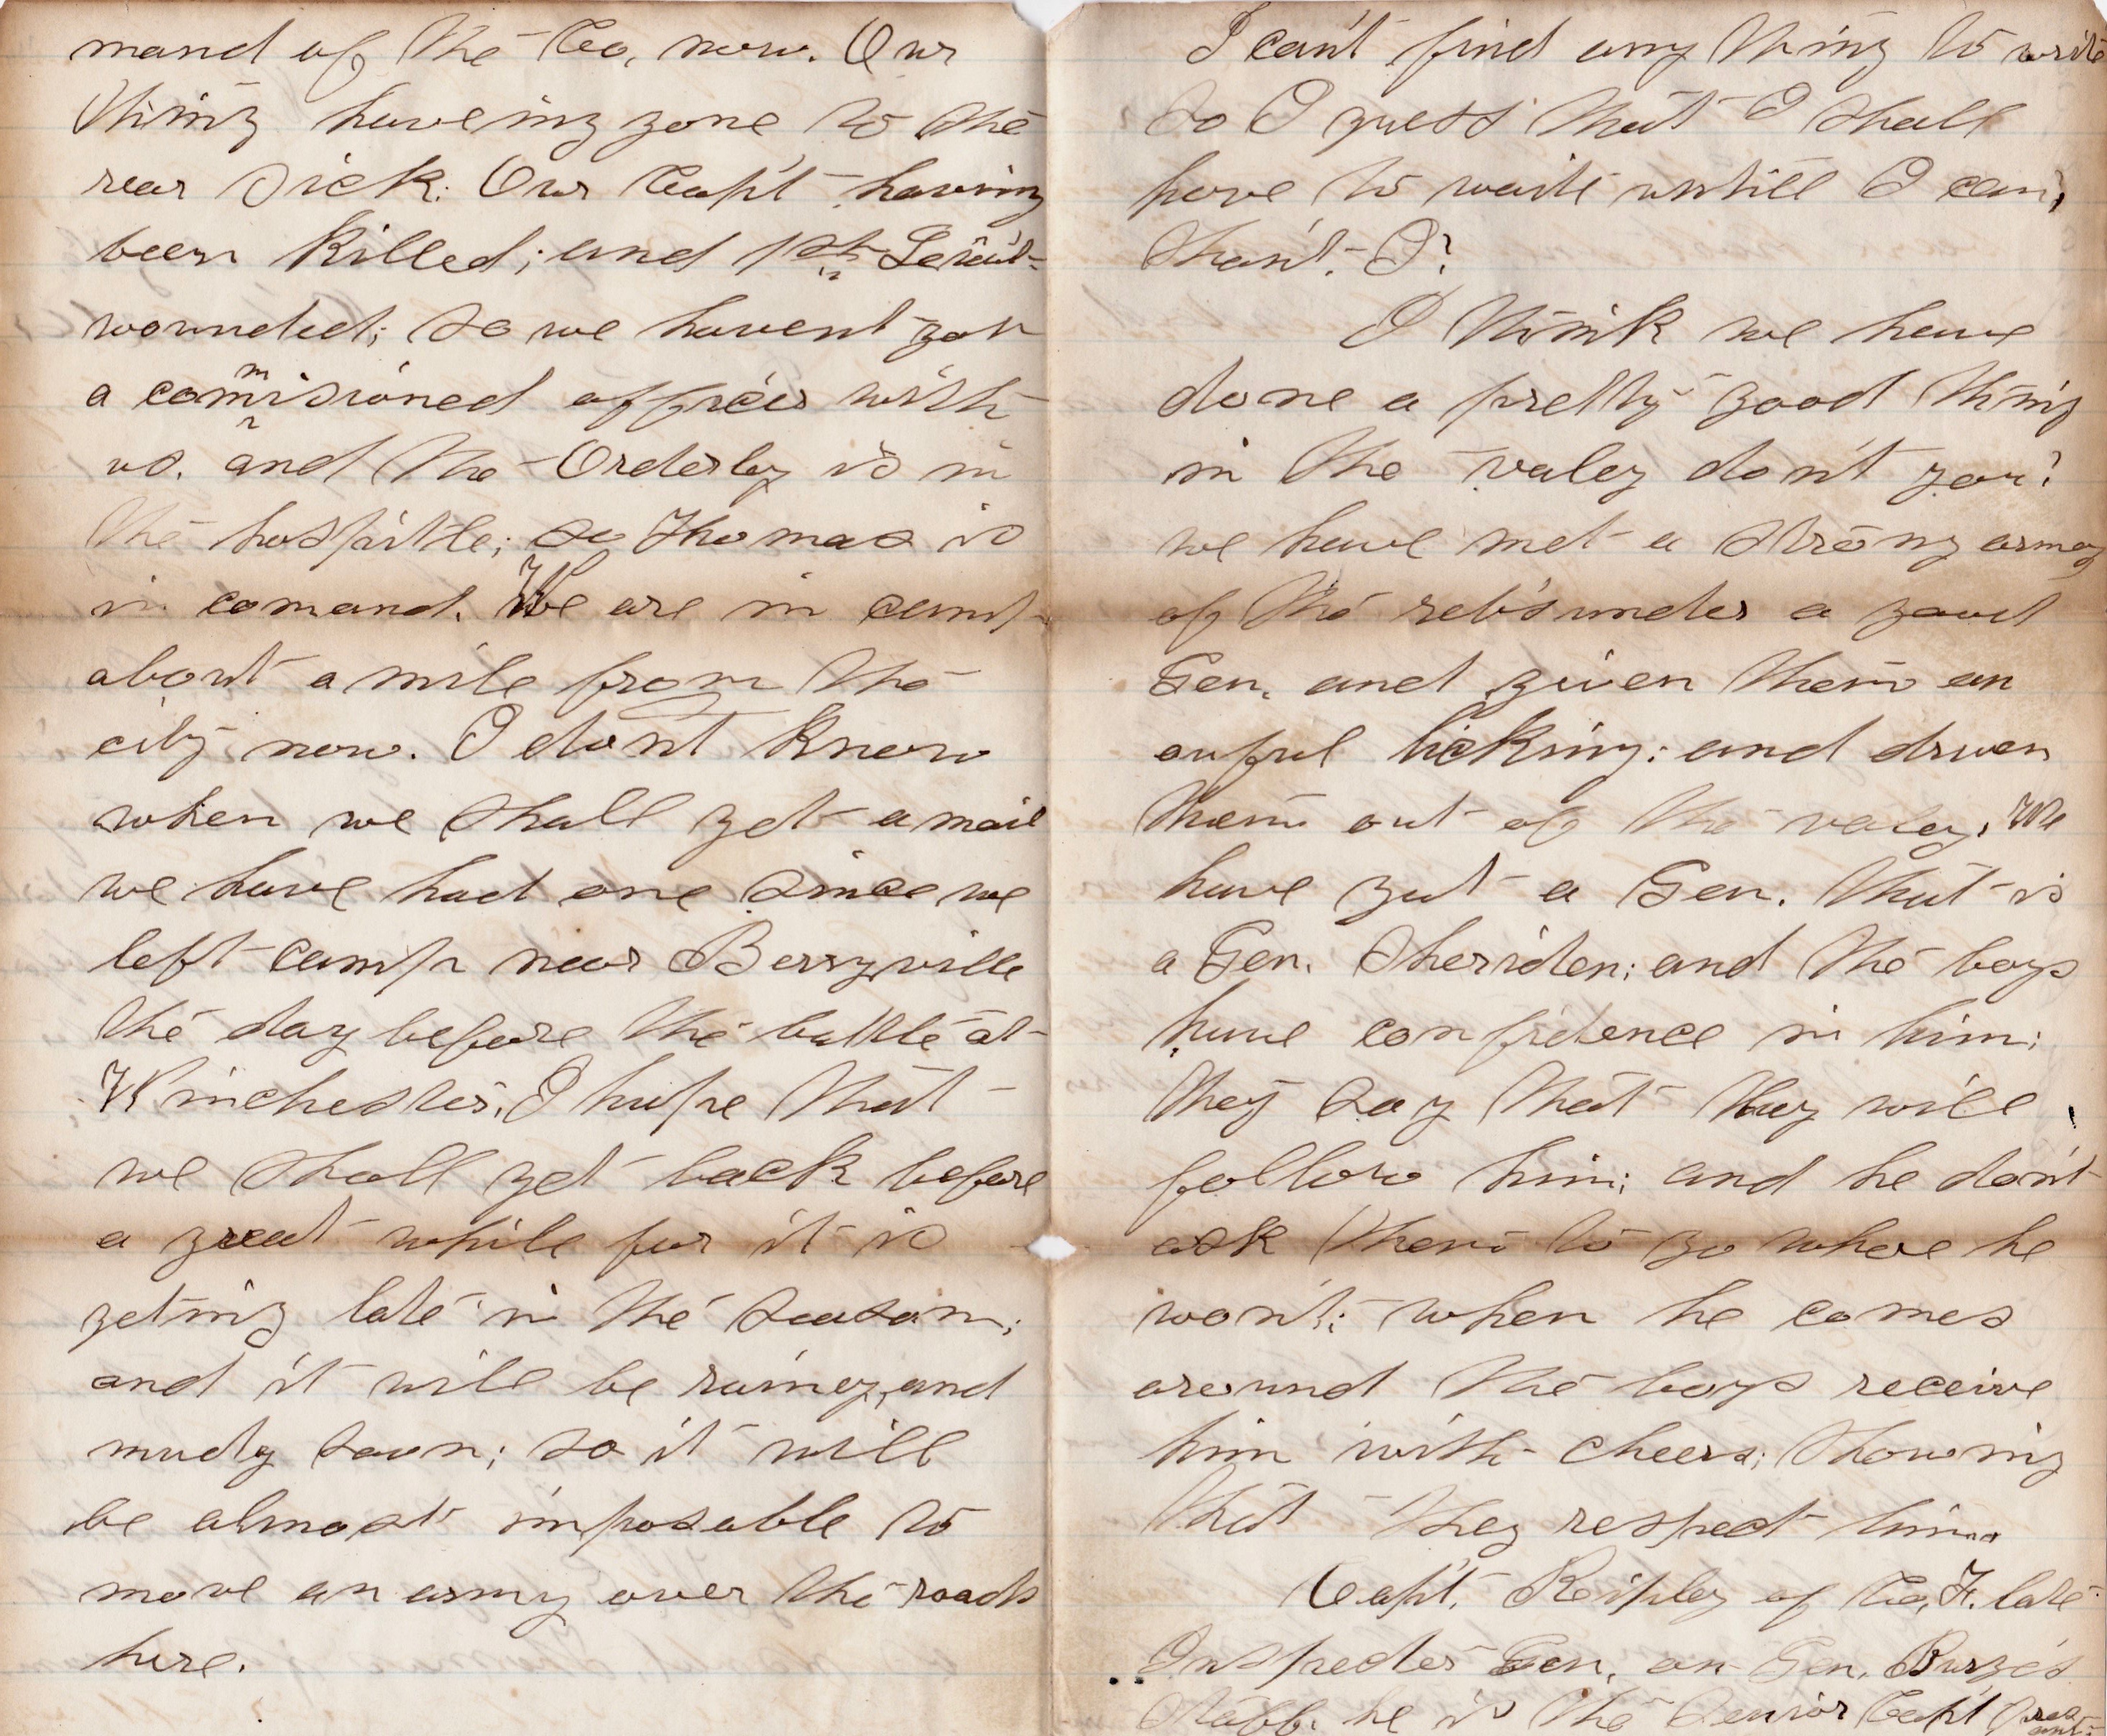 mand of the Co, now. Our
thing haveing gone to the
rear sick. Our Capt having
been killed; and 1st Leiut
wounded; so we havent got
a commisioned officer with
us. and the Orderly is in
the hospitle; so Thomas is
in comand. We are in camp
about a mile from the
city now. I dont know
when we shall get a mail
we have had one since we
left camp near Berryville
the day before the battle at
Winchester. I hope that
we shall get back before
a great while for it is
geting late in the season;
and it will be rainey, and
mudy soon; so it will
be almost imposable to
move an army over the roads
here.
I can't find any thing to write
so I guess that I shall
have to waite untill I can,
shan't I?
I think we have
done a pretty good thing
in the valey don't you?
we have met a strong army
of the reb's under a good
Gen. and given them an
awful licking; and driven
them out of the valey. We
have got a Gen. that is
a Gen. Sheriden; and the boys
have confidence in him;
they say that they will
follow him; and he don't
ask them to go where he
won't; when he comes
around the boys receive
him with cheers; showing
that they respect him.
Capt. Reipley of Co, F. late
Inspecter Gen. on Gen. Burge's
Staff. he is the Senior Capt pres
ant.